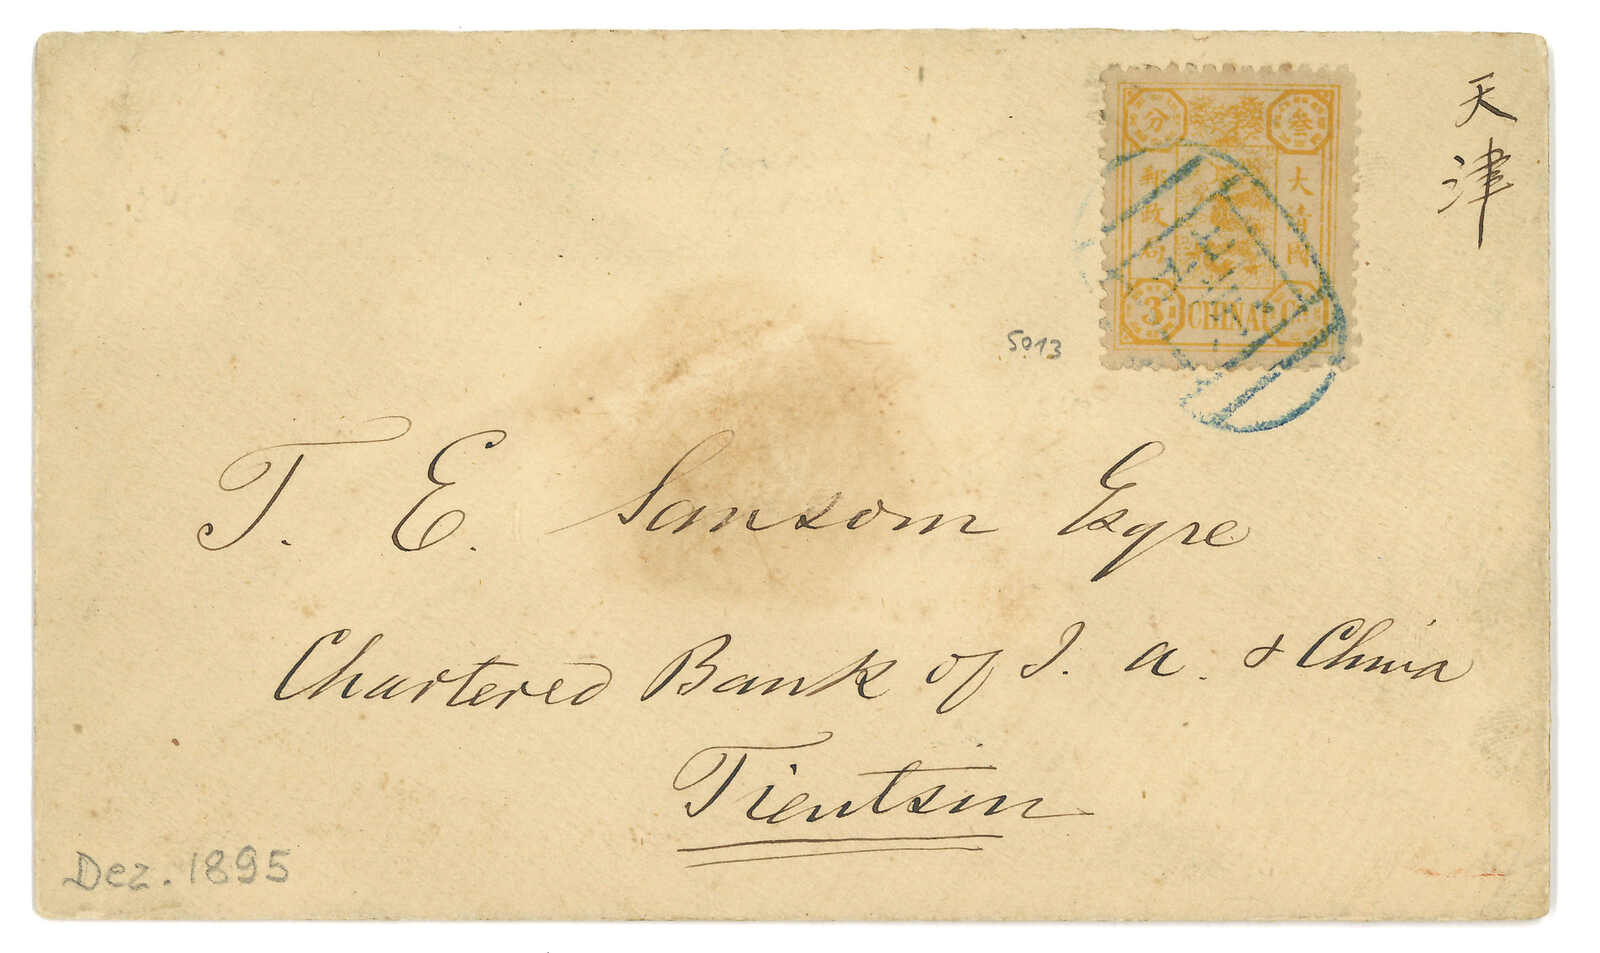 天津
分 叁
大清國
郵政局
3 CHINA
So13
T. E. Sansom Esqre
Chartered Bank of I. A. & China
Tientsin
Dez. 1895